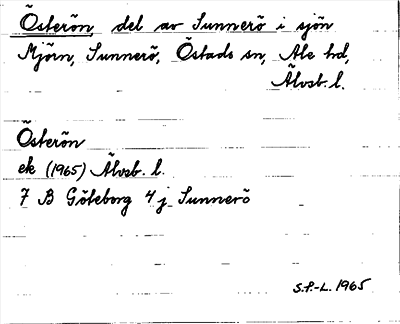 Österön, del av Sunnerö i sjön
Mjörn, Sunnerö, Östads sn, Ale hd,
Älvsb. l.
Österön
ek (1965) Älvsb. l.
7 B Göteborg 4 j Sunnerö
S.P.-L. 1965